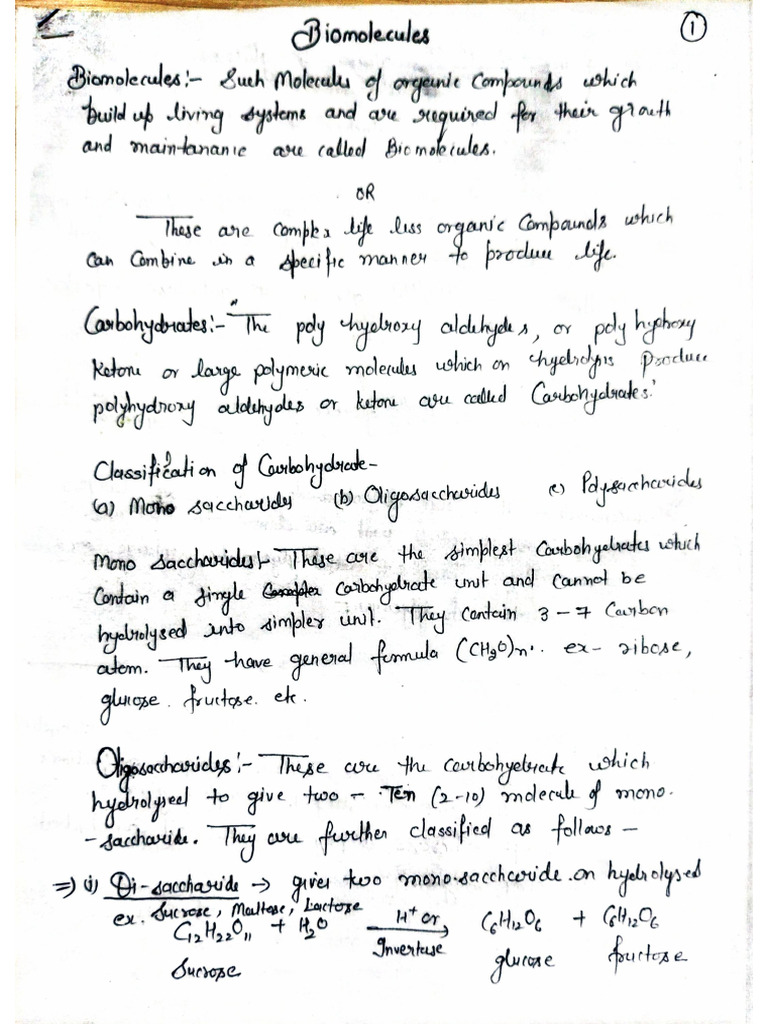 Biomolecules
1
Biomolecules:- Such Molecules of organic Compounds which
build up living systems and are required for their growth
and maintananie are called Biomolecules.
OR
These are complex life less organic Compounds which
can Combine in a specific manner to produce life.
Carbohydrates:- "The poly hydroxy aldehydes, or poly hyhoxy
Ketone or large polymeric molecules which on hydrolysis produce
polyhydroxy aldehydes or ketone are called Carbohydrates."
Classification of Carbohydrate-
(a) Mono saccharides (b) Oligosaccharides (c) Polysaccharides
Mono Saccharides:- These are the simplest Carbohydrates which
Contain a single Complex carbohydrate unit and cannot be
hydrolysed into simpler unit. They contain 3-7 Carbon
atom. They have general formula (CH2O)n. ex- ribose,
glucose. fructose. etc.
Oligosaccharides:- These are the carbohydrate which
hydrolysed to give two - Ten (2-10) molecule of mono-
-saccharide. They are further classified as follows -
=> (i) Di-saccharide -> gives two mono-saccharide on hydrolysed
ex. Sucrose, Maltose, Lactose
C12H22O11 + H2O H+ or Invertase → C6H12O6 + C6H12O6
Sucrose glucose fructose